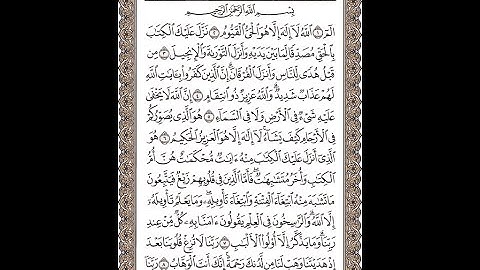 بِسْمِ ٱللَّهِ ٱلرَّحْمَٰنِ ٱلرَّحِيمِ
الٓمٓ ١ ٱللَّهُ لَآ إِلَٰهَ إِلَّا هُوَ ٱلْحَىُّ ٱلْقَيُّومُ ٢ نَزَّلَ عَلَيْكَ ٱلْكِتَٰبَ
بِٱلْحَقِّ مُصَدِّقًا لِّمَا بَيْنَ يَدَيْهِ وَأَنزَلَ ٱلتَّوْرَىٰةَ وَٱلْإِنجِيلَ ٣ مِن
قَبْلُ هُدًى لِّلنَّاسِ وَأَنزَلَ ٱلْفُرْقَانَ ۗ إِنَّ ٱلَّذِينَ كَفَرُوا۟ بِـَٔايَٰتِ ٱللَّهِ
لَهُمْ عَذَابٌ شَدِيدٌ ۗ وَٱللَّهُ عَزِيزٌ ذُو ٱنتِقَامٍ ٤ إِنَّ ٱللَّهَ لَا يَخْفَىٰ
عَلَيْهِ شَىْءٌ فِى ٱلْأَرْضِ وَلَا فِى ٱلسَّمَآءِ ٥ هُوَ ٱلَّذِى يُصَوِّرُكُمْ
فِى ٱلْأَرْحَامِ كَيْفَ يَشَآءُ ۚ لَآ إِلَٰهَ إِلَّا هُوَ ٱلْعَزِيزُ ٱلْحَكِيمُ ٦ هُوَ
ٱلَّذِىٓ أَنزَلَ عَلَيْكَ ٱلْكِتَٰبَ مِنْهُ ءَايَٰتٌ مُّحْكَمَٰتٌ هُنَّ أُمُّ
ٱلْكِتَٰبِ وَأُخَرُ مُتَشَٰبِهَٰتٌ ۖ فَأَمَّا ٱلَّذِينَ فِى قُلُوبِهِمْ زَيْغٌ فَيَتَّبِعُونَ
مَا تَشَٰبَهَ مِنْهُ ٱبْتِغَآءَ ٱلْفِتْنَةِ وَٱبْتِغَآءَ تَأْوِيلِهِۦ ۗ وَمَا يَعْلَمُ تَأْوِيلَهُۥٓ
إِلَّا ٱللَّهُ ۗ وَٱلرَّٰسِخُونَ فِى ٱلْعِلْمِ يَقُولُونَ ءَامَنَّا بِهِۦ كُلٌّ مِّنْ عِندِ
رَبِّنَا ۗ وَمَا يَذَّكَّرُ إِلَّآ أُو۟لُوا۟ ٱلْأَلْبَٰبِ ٧ رَبَّنَا لَا تُزِغْ قُلُوبَنَا بَعْدَ
إِذْ هَدَيْتَنَا وَهَبْ لَنَا مِن لَّدُنكَ رَحْمَةً ۚ إِنَّكَ أَنتَ ٱلْوَهَّابُ ٨ رَبَّنَآ